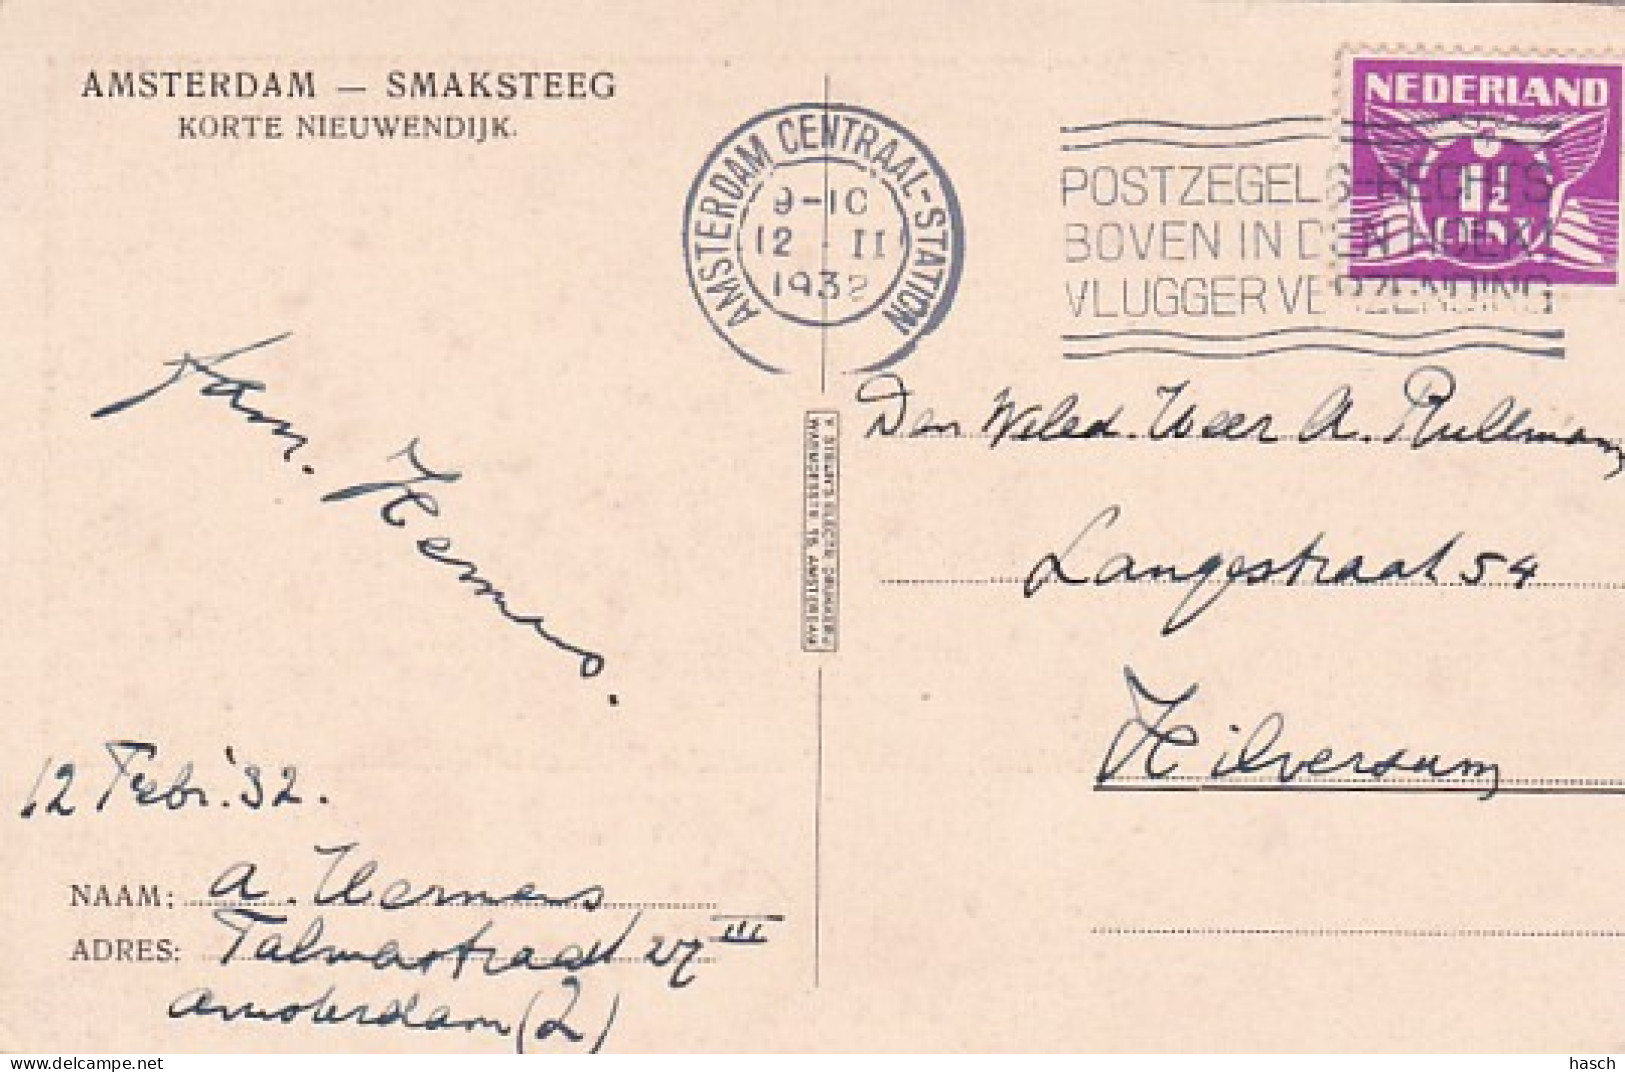 AMSTERDAM — SMAKSTEEG
KORTE NIEUWENDIJK.
AMSTERDAM CENTRAAL-STATION
9-10
12 II
1932
POSTZEGELS RECHTS
BOVEN IN DEN HOEK!
VLUGGER VERZENDING
NEDERLAND
1½
CENT
Fam. Hermens.
12 Febr. '32.
NAAM: A. Hermens
ADRES: Talmastraat 27 III
Amsterdam (Z)
Den Weled. Heer A. Rullmann
Langestraat 54
Hilversum
WARMOESSTR. 76, AMSTERDAM
hasch